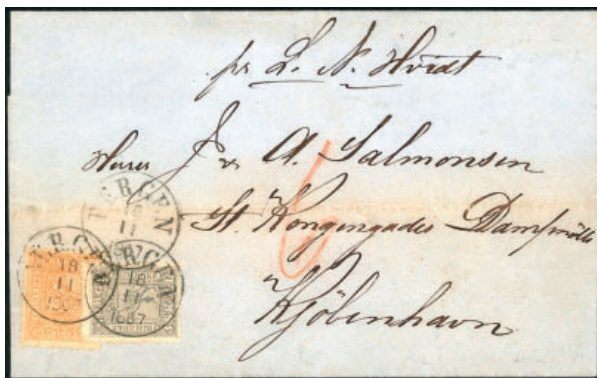 pr L. N. Hvidt
Herrer J. & A. Salmonsen
St. Kongengades Dampmölle
Kjöbenhavn
6
BERGEN
18
11
BERGEN
18
11
1867
BERGEN
18
11
1867